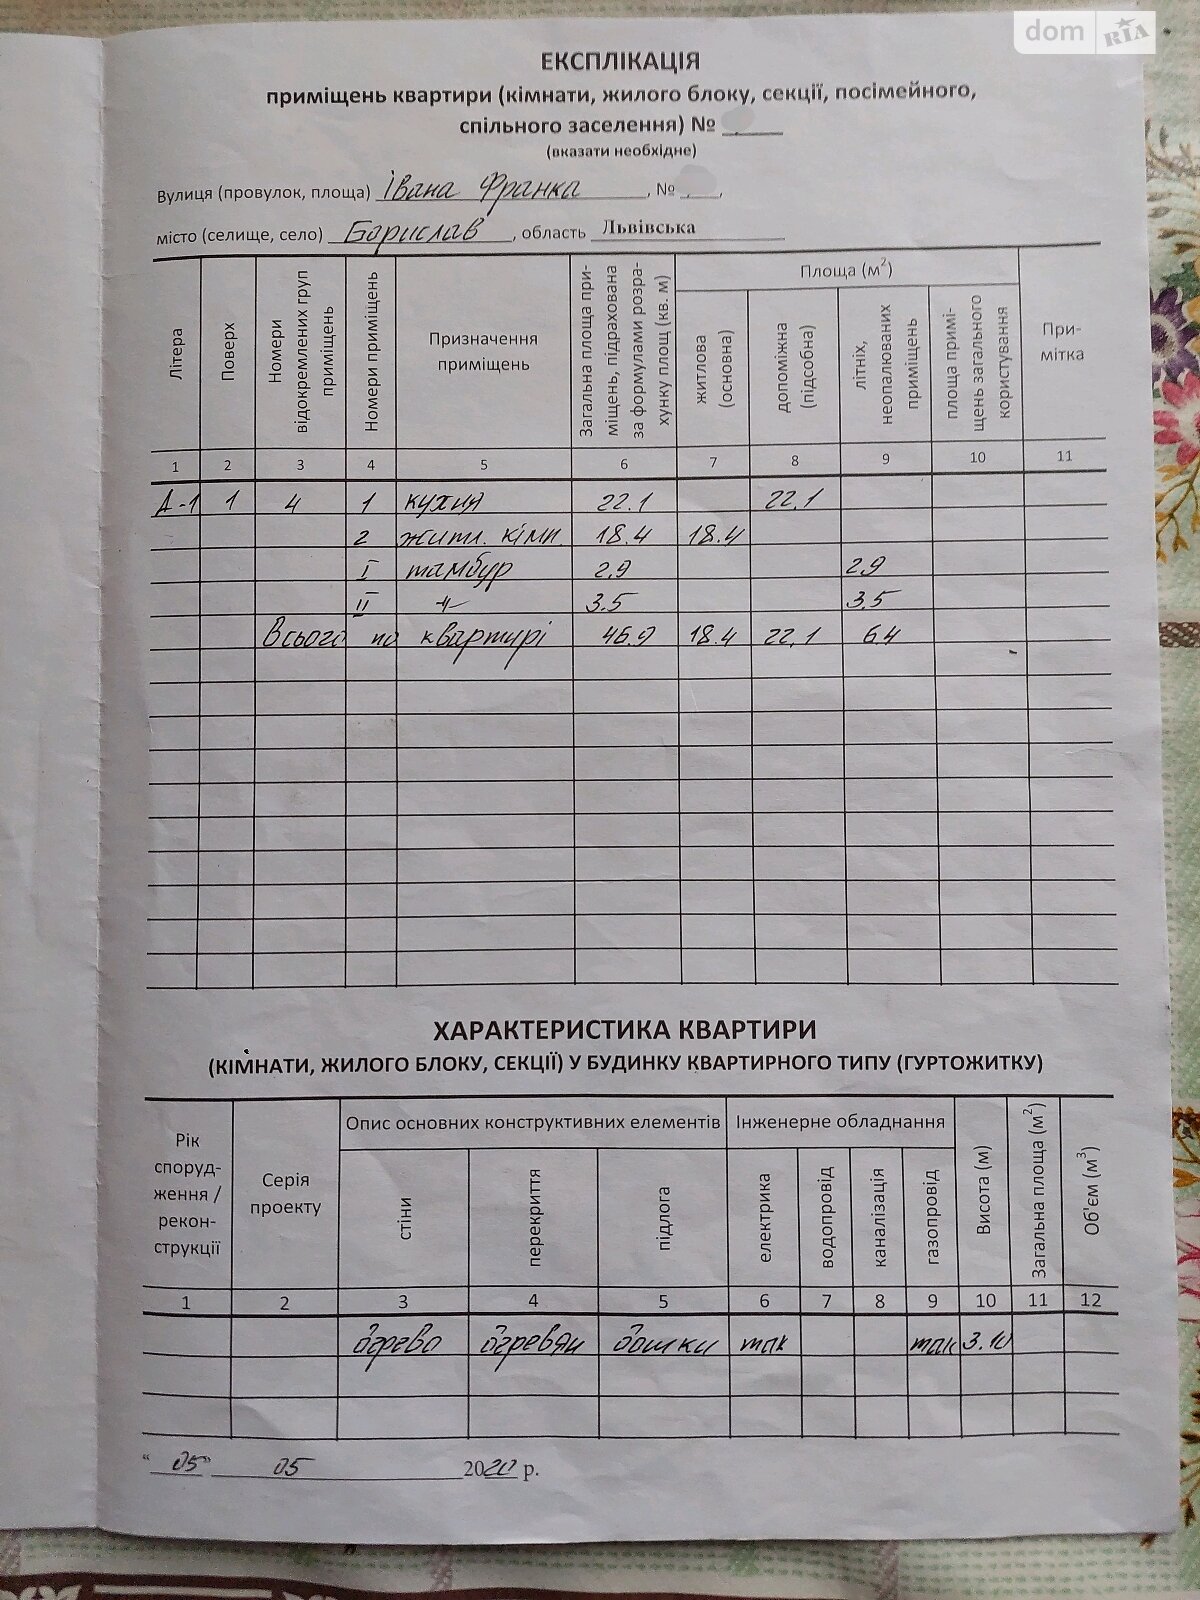 dom RIA
ЕКСПЛІКАЦІЯ
приміщень квартири (кімнати, жилого блоку, секції, посімейного,
спільного заселення) № ______
(вказати необхідне)
Вулиця (провулок, площа) Івана Франка, № ____,
місто (селище, село) Борислав, область Львівська
Літера
Поверх
Номери відокремлених груп приміщень
Номери приміщень
Призначення приміщень
Загальна площа при-
міщень, підрахована
за формулами розра-
хунку площ (кв. м)
Площа (м²)
житлова (основна)
допоміжна (підсобна)
літніх, неопалюваних приміщень
площа примі-
щень загального
користування
При-
мітка
1 2 3 4 5 6 7 8 9 10 11
А-1 1 4 1 кухня 22.1 22,1
2 житл. кімн. 18.4 18.4
I тамбур 2,9 2,9
II -//- 3.5 3.5
Всього по квартирі 46.9 18.4 22,1 6.4
ХАРАКТЕРИСТИКА КВАРТИРИ
(КІМНАТИ, ЖИЛОГО БЛОКУ, СЕКЦІЇ) У БУДИНКУ КВАРТИРНОГО ТИПУ (ГУРТОЖИТКУ)
Рік
споруд-
ження /
рекон-
струкції
Серія
проекту
Опис основних конструктивних елементів
стіни
перекриття
підлога
Інженерне обладнання
електрика
водопровід
каналізація
газопровід
Висота (м)
Загальна площа (м²)
Об'єм (м³)
1 2 3 4 5 6 7 8 9 10 11 12
дерево деревян дошки так так 3.10
"05" 05 2020 р.